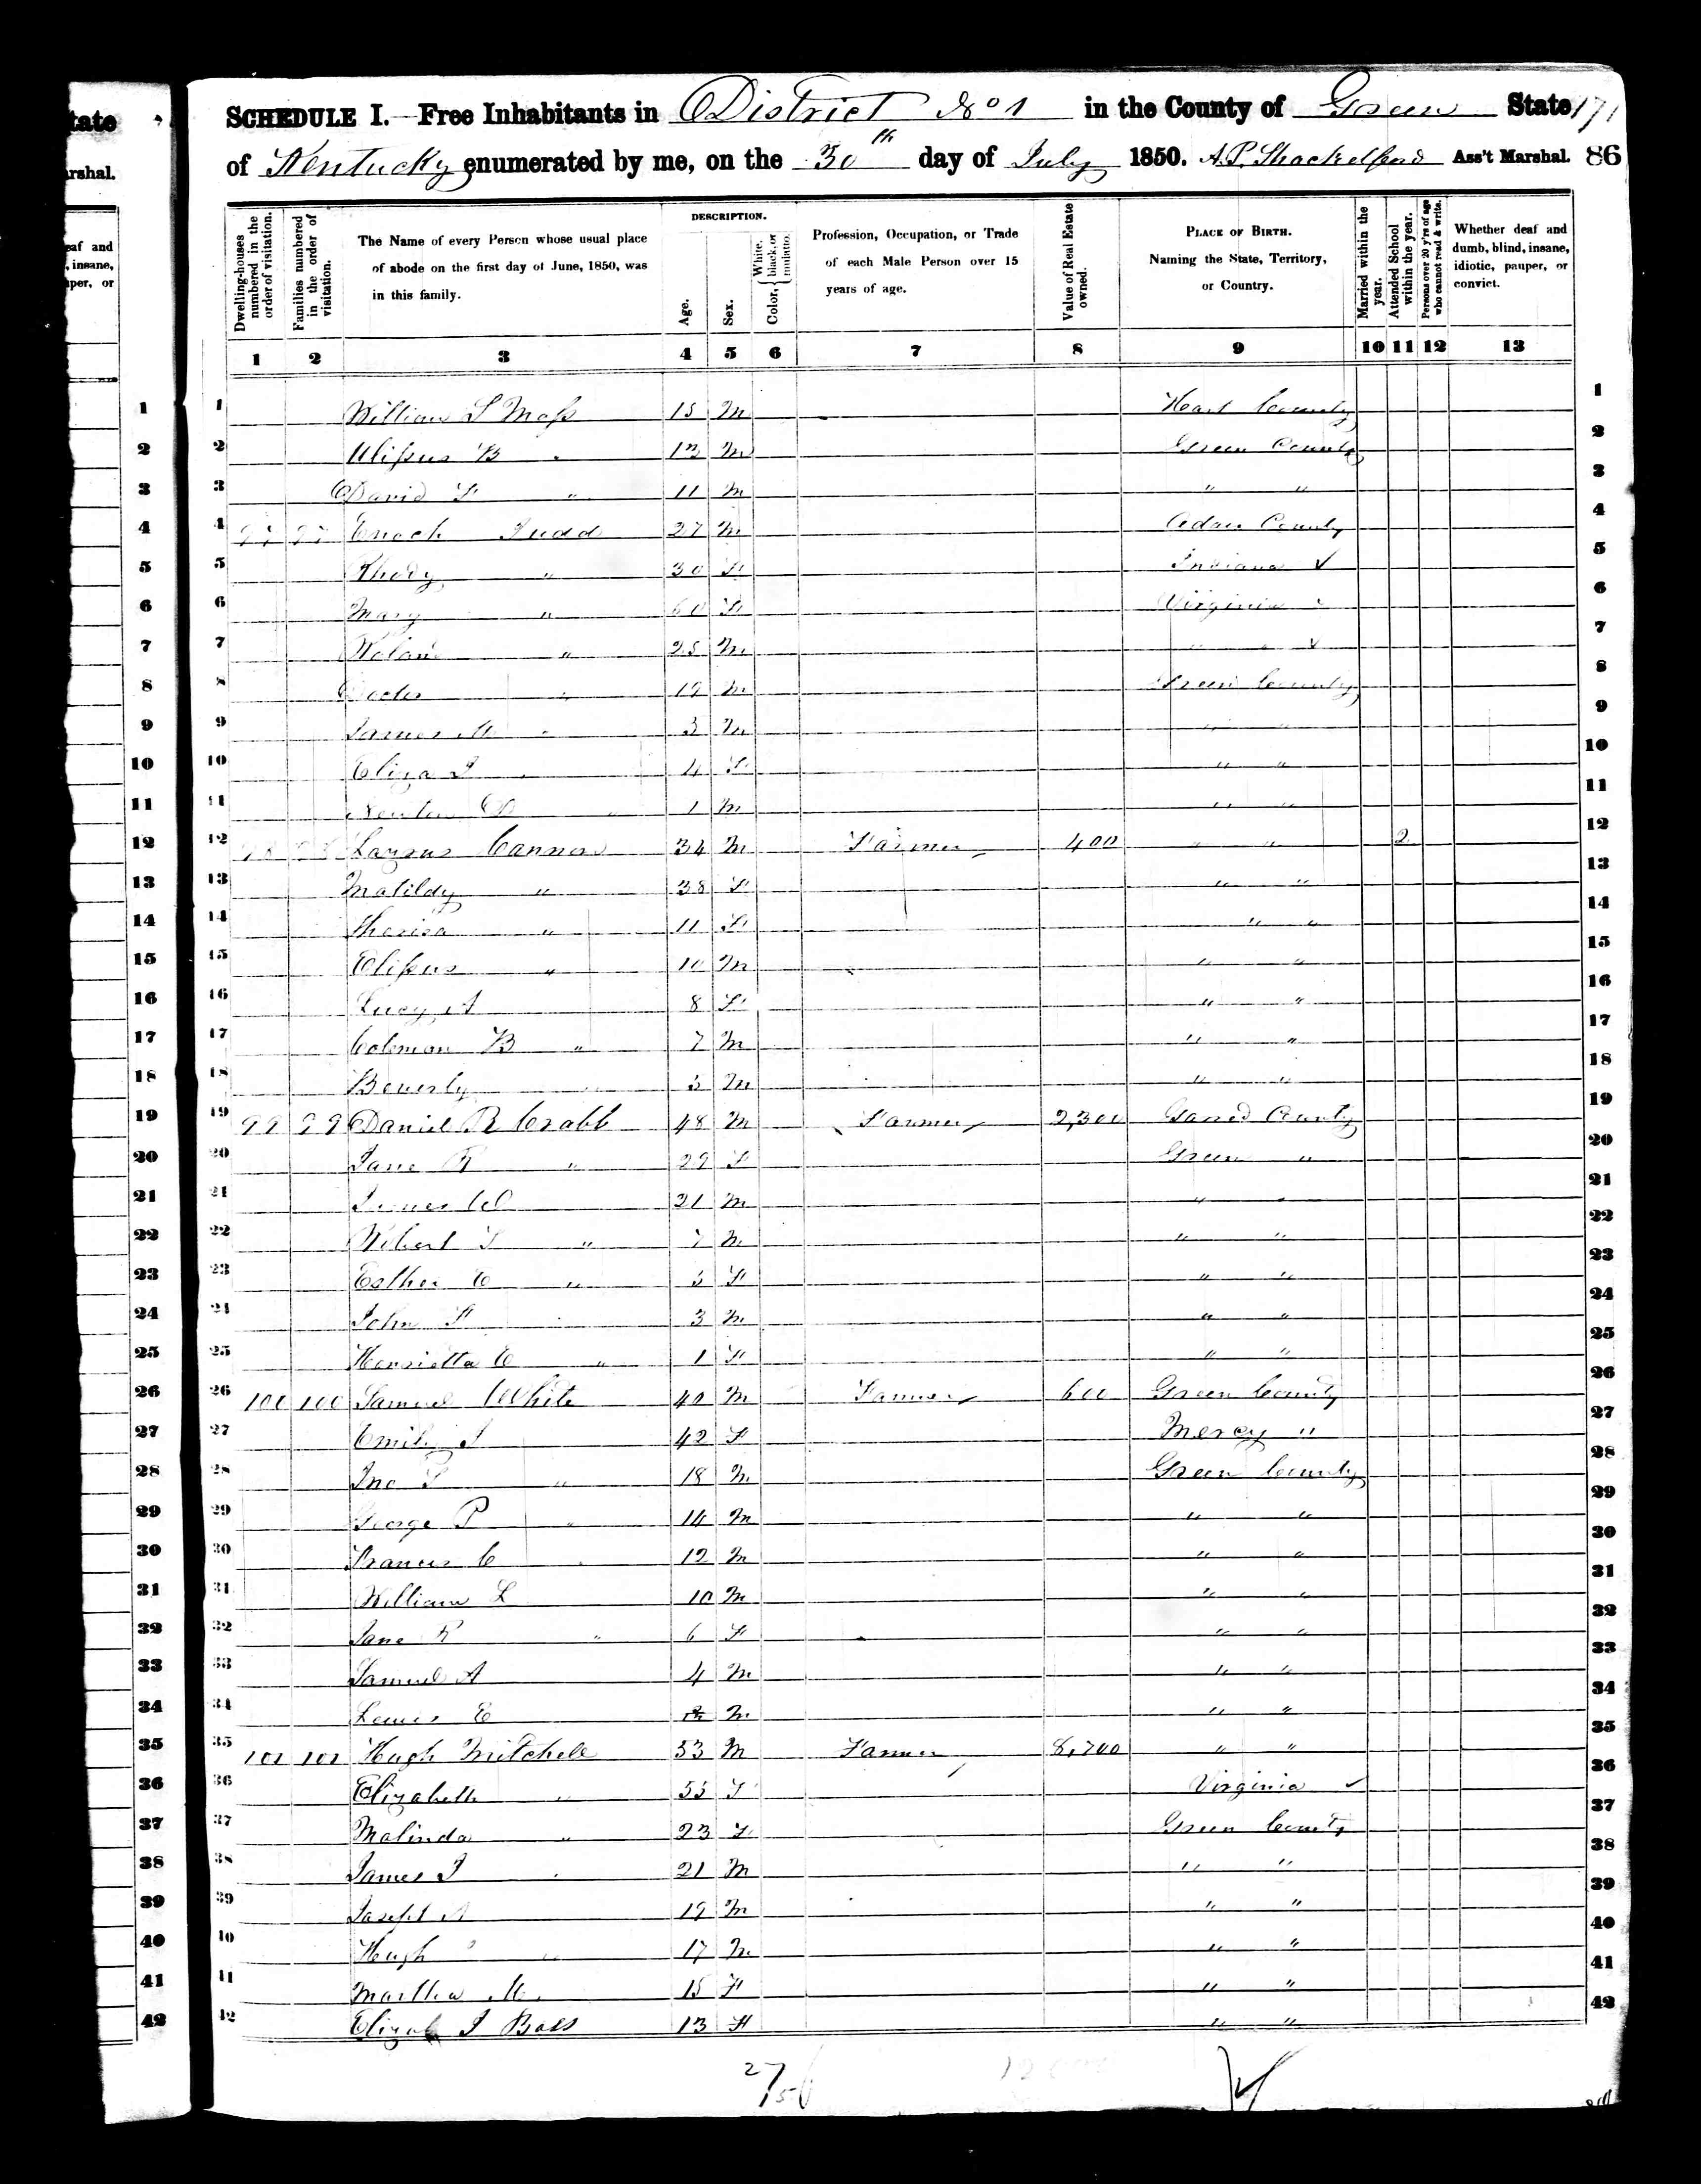 tate
rshal.
eaf and
, insane,
uper, or
SCHEDULE I.—Free Inhabitants in District No 1 in the County of Green State 171
of Kentucky enumerated by me, on the 30th day of July 1850. A. P. Shackelford Ass't Marshal. 86
Dwelling-houses numbered in the order of visitation.
Families numbered in the order of visitation.
The Name of every Person whose usual place of abode on the first day of June, 1850, was in this family.
DESCRIPTION.
Age.
Sex.
Color, { White, black, or mulatto.
Profession, Occupation, or Trade of each Male Person over 15 years of age.
Value of Real Estate owned.
PLACE OF BIRTH. Naming the State, Territory, or Country.
Married within the year.
Attended School within the year.
Persons over 20 y'rs of age who cannot read & write.
Whether deaf and dumb, blind, insane, idiotic, pauper, or convict.
1 2 3 4 5 6 7 8 9 10 11 12 13
1 William L Moss 15 M Hart County 1
2 Ulissus B " 13 M Green County 2
3 David F " 11 M " " 3
4 97 97 Enoch Judd 27 M Adair County 4
5 Rhody " 30 F Indiana ✓ 5
6 Mary " 60 F Virginia ✓ 6
7 " 25 M " " ✓ 7
8 Doctor " 19 M Green County 8
9 James M " 3 M " " 9
10 Eliza J " 4 F " " 10
11 Newton " 1 M " " 11
12 98 98 Lazrus Cannon 34 M Farmer 400 " " 2 12
13 Matildy " 38 F " " 13
14 Therisa " 11 F " " 14
15 Elissus " 10 M " " 15
16 Lucy A 8 F " " 16
17 Coleman B " 7 M " " 17
18 Beverly " 5 M " " 18
19 99 99 Daniel R Crabb 48 M Farmer 2,300 Garred County 19
20 Jane R " 29 F Green " 20
21 James W 21 M " " 21
22 Robert S " 7 M " " 22
23 Esther E " 5 F " " 23
24 John F " 3 M " " 24
25 Henrietta E " 1 F " " 25
26 100 100 Samuel White 40 M Farmer 600 Green County 26
27 Emily J 42 F Mercy " 27
28 Jno S " 18 M Green County 28
29 George P " 14 M " " 29
30 Francis C " 12 M " " 30
31 William L 10 M " " 31
32 Jane R " 6 F " " 32
33 Samuel A 4 M " " 33
34 Lewis E M " " 34
35 101 101 Hugh Mitchell 53 M Farmer 8,700 " " 35
36 Elizabeth " 55 F Virginia ✓ 36
37 Malinda " 23 F Green County 37
38 James J " 21 M " " 38
39 Joseph 19 M " " 39
40 Hugh " 17 M " " 40
41 Martha M. 15 F " " 41
42 Elizab J Ball 13 F " " 42